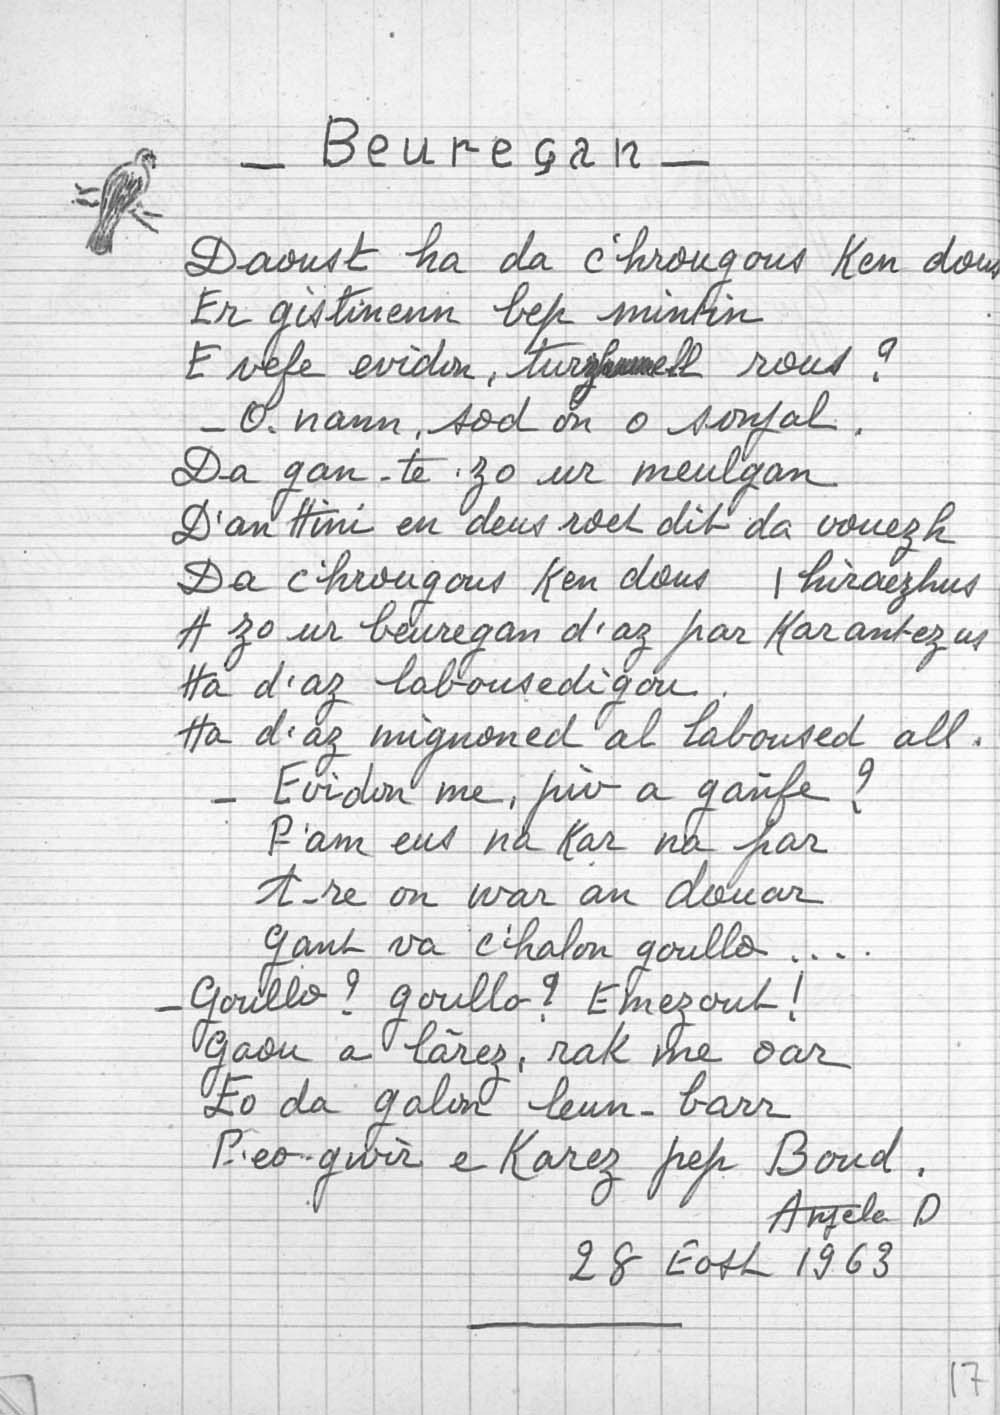 — Beuregan —
Daoust ha da c'hrougous Ken dous
Er gistinenn bep mintin
E vefe evidon, turzhunell rous ?
– O. nann, sod on o sonjal.
Da gan-te zo ur meulgan
D'an Hini en deus roet dit da vouezh
Da c'hrougous Ken dous | hiraezhus
A zo ur beuregan d'az par Karantezus
Ha d'az labousedigou.
Ha d'az mignoned al laboused all.
– Evidon me, piv a gañfe ?
P'am eus na Kar na par
T-re on war an douar
Gant va c'halon goullo ....
– Goullo ? goullo ? Emezout !
Gaou a lârez, rak me oar
Eo da galon leun-barr
P-eo-gwir e Karez pep Boud.
Anjela D
28 Eost 1963
17